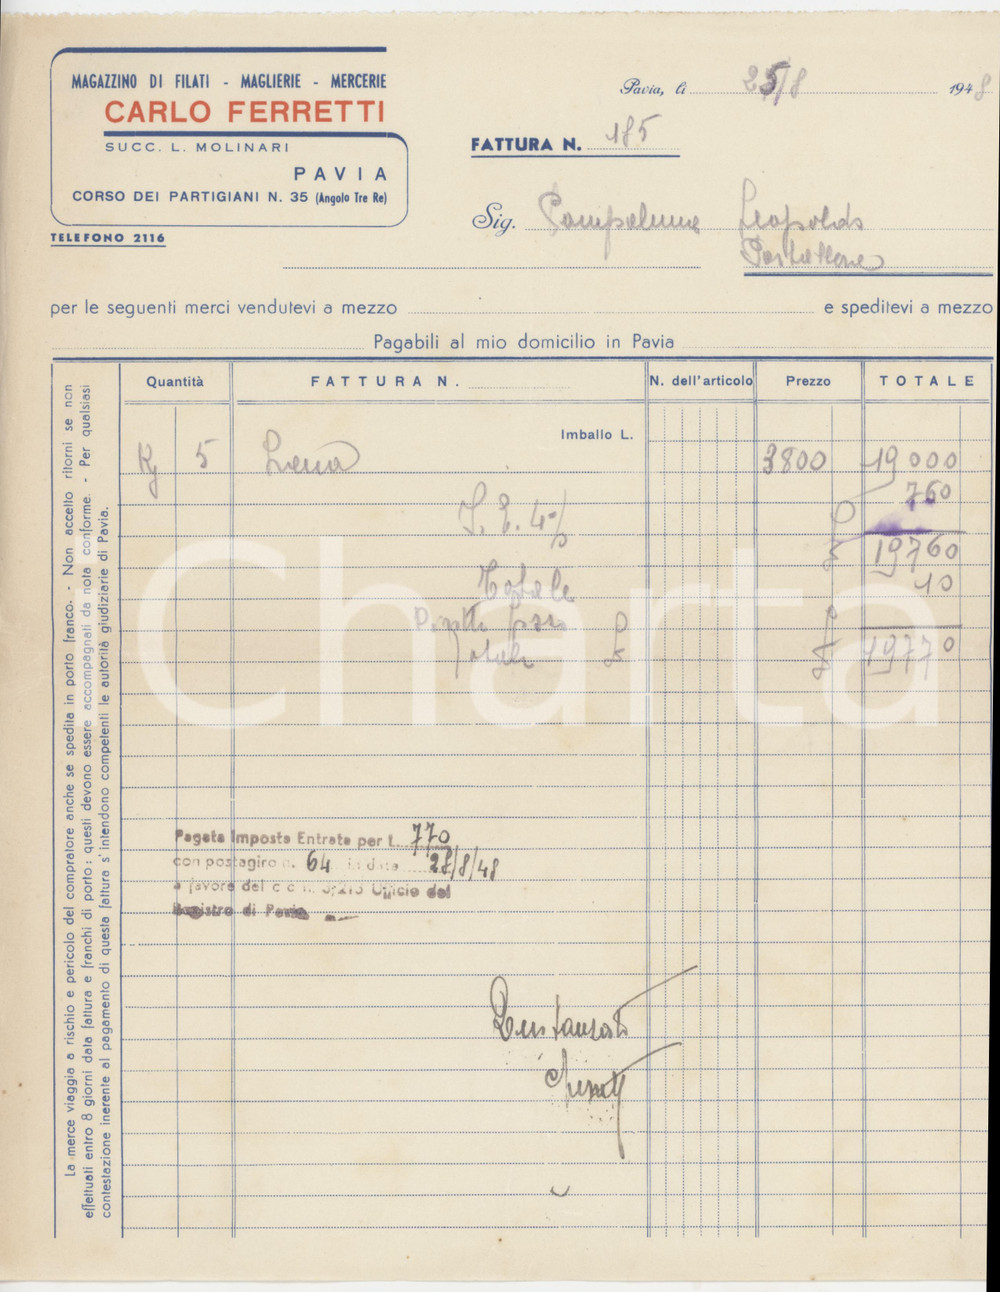 MAGAZZINO DI FILATI - MAGLIERIE - MERCERIE
CARLO FERRETTI
SUCC. L. MOLINARI
PAVIA
CORSO DEI PARTIGIANI N. 35 (Angolo Tre Re)
TELEFONO 2116
Pavia, li 25/8 1948
FATTURA N. 185
Sig. Leopoldo
per le seguenti merci vendutevi a mezzo e speditevi a mezzo
Pagabili al mio domicilio in Pavia
Quantità FATTURA N. N. dell'articolo Prezzo TOTALE
Imballo L.
Kg 5 Lana 3800 19000
I. E. 4% 760
Totale £ 19760
10
Totale £ 19770
Pagata Imposta Entrata per L. 770
con postagiro n. 64 in data 28/8/48
a favore del c c n. Ufficio del
Registro di Pavia
La merce viaggia a rischio e pericolo del compratore anche se spedita in porto franco. - Non accetto ritorni se non
effettuati entro 8 giorni data fattura e franchi di porto: questi devono essere accompagnati da nota conforme. - Per qualsiasi
contestazione inerente al pagamento di questa fattura s'intendono competenti le autorità giudiziarie di Pavia.
Charta